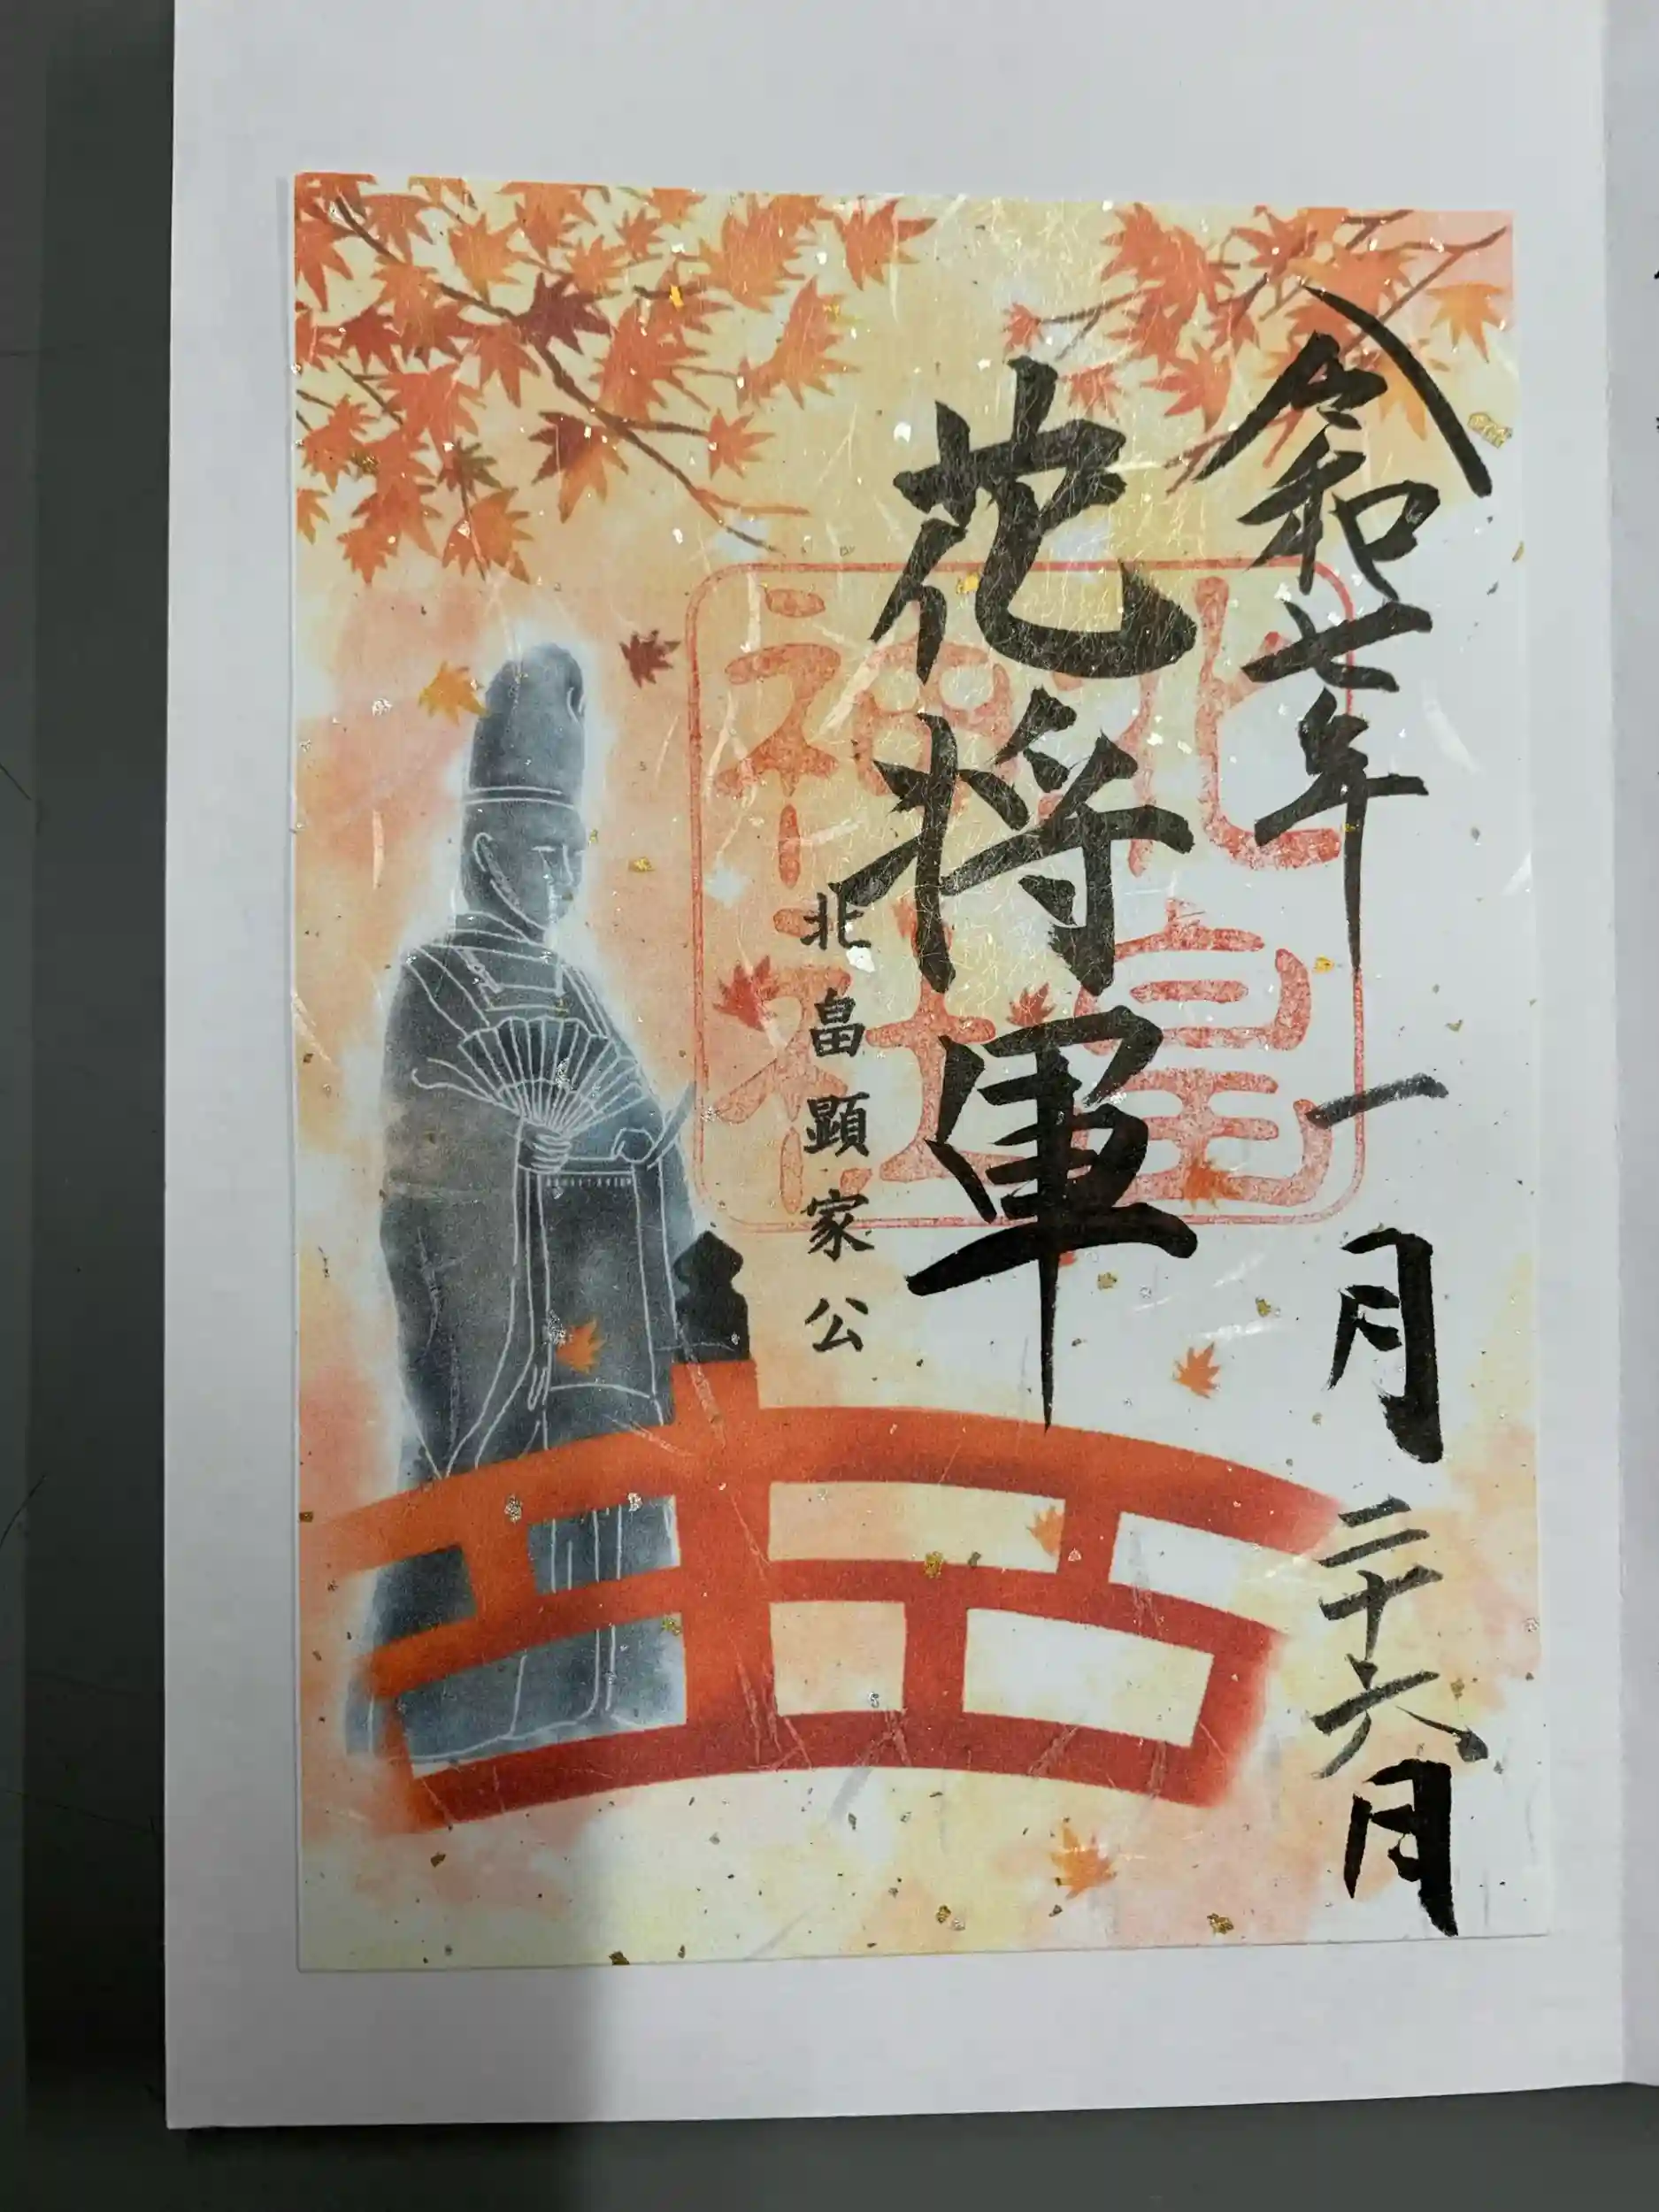 令和七年一月二十六日
花将軍
北畠顕家公
北畠
神社